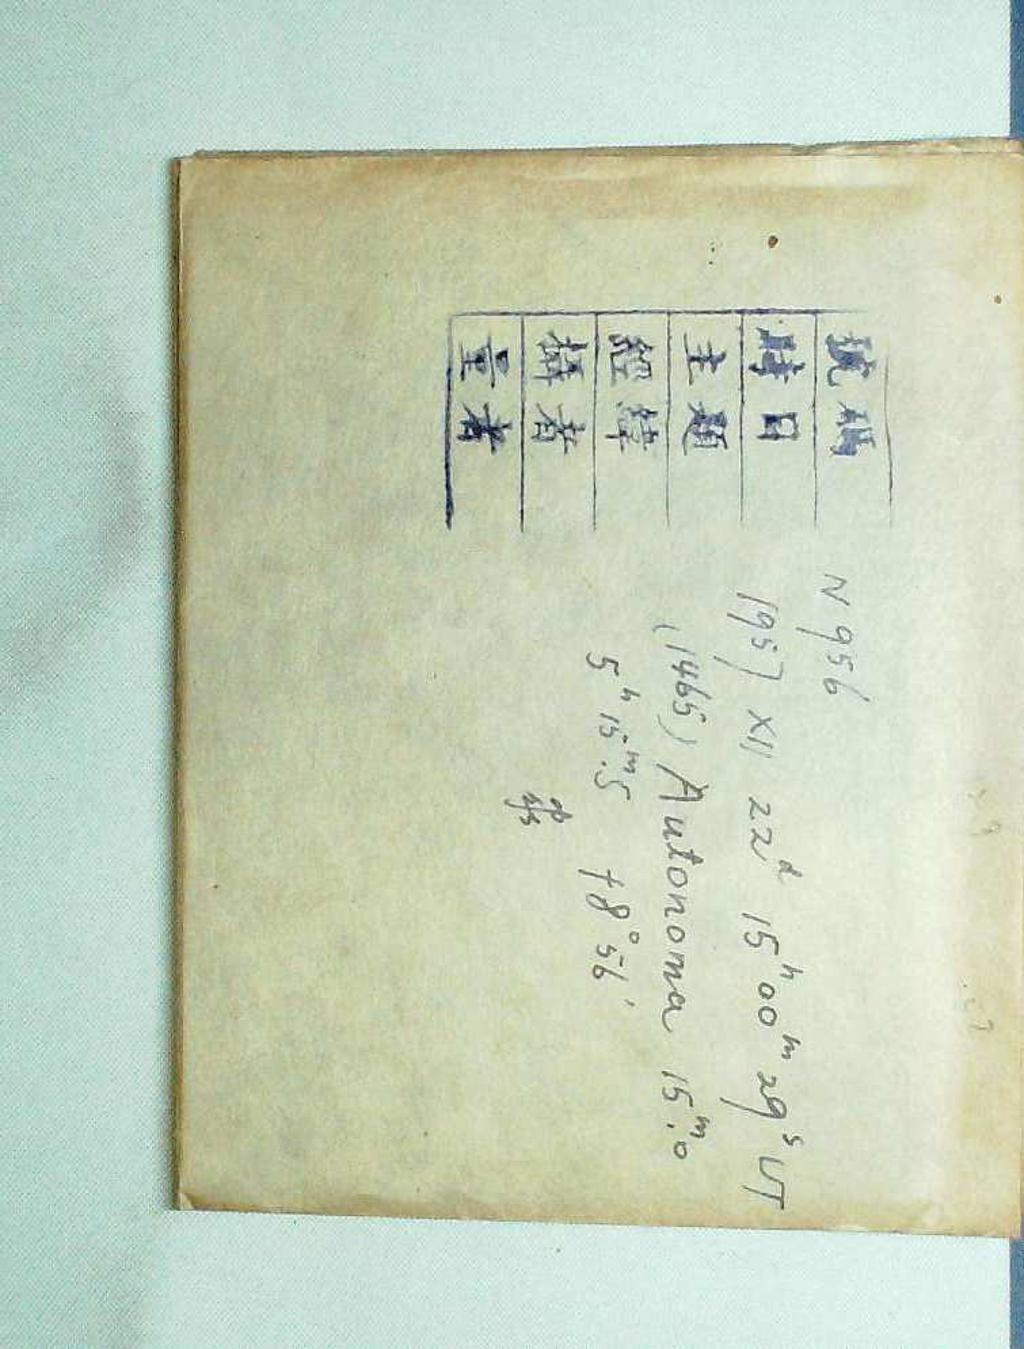 號碼 N956
時日 1957 XII 22ᵈ 15ʰ00ᵐ29ˢ UT
主題 (1465) Autonoma 15ᵐ.0
經緯 5ʰ15ᵐ.5 +8°56′
攝者
量者